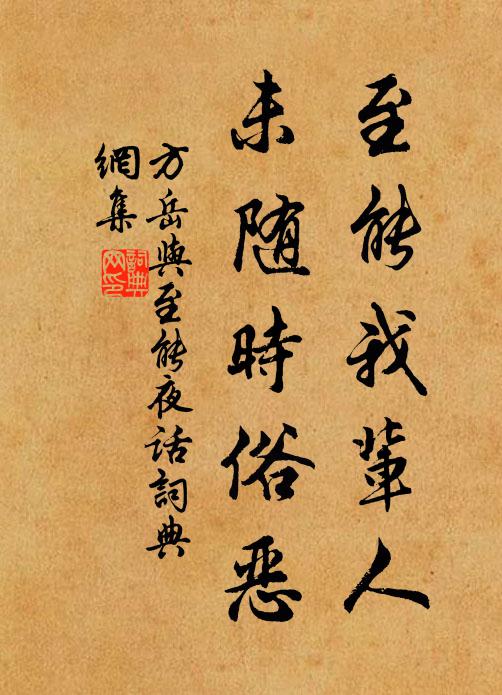 至能我輩人
未随時俗恶
方岳與至能夜话詞典
網集
詞典网印